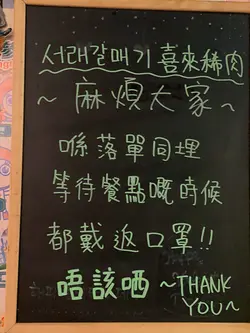 서래갈매기 喜來稀肉
~ 麻煩大家 ~
喺落單同埋
等待餐點嘅時候
都戴返口罩!!
唔該哂 ~THANK
YOU~